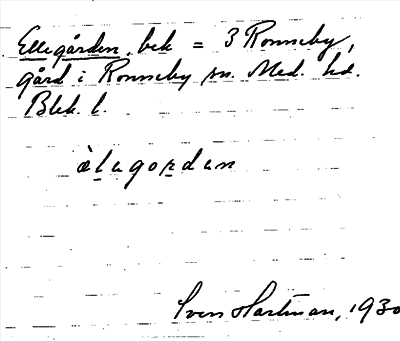 Ellegården, bek = 3 Ronneby,
gård i Ronneby sn. Med. hd.
Blek. l.
àlagordan
Sven Hartman, 1930